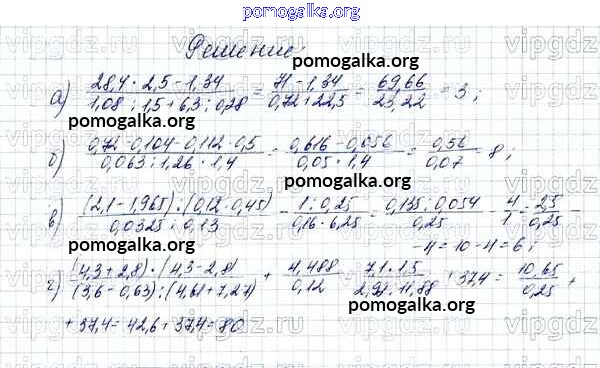 pomogalka.org
Решение:
pomogalka.org
а) (28,4 · 2,5 − 1,34)/(1,08 : 1,5 + 6,3 : 0,28) = (71 − 1,34)/(0,72 + 22,5) = 69,66/23,22 = 3;
pomogalka.org
б) (0,72 − 0,104 − 0,112 · 0,5)/(0,063 : 1,26 · 1,4) = (0,616 − 0,056)/(0,05 · 1,4) = 0,56/0,07 = 8;
pomogalka.org
в) (2,1 − 1,965) : (0,12 · 0,45)/(0,0325 : 0,13) − (1 : 0,25)/(0,16 · 6,25) = (0,135 : 0,054)/0,25 − 4/1 = 2,5/0,25 −
pomogalka.org
− 4 = 10 − 4 = 6;
г) (4,3 + 2,8) · (4,3 − 2,8)/(3,6 − 0,63) : (4,61 + 7,27) + 4,488/0,12 = 7,1 · 1,5/2,97 : 11,88 + 37,4 = 10,65/0,25 +
pomogalka.org
+ 37,4 = 42,6 + 37,4 = 80
pomogalka.org